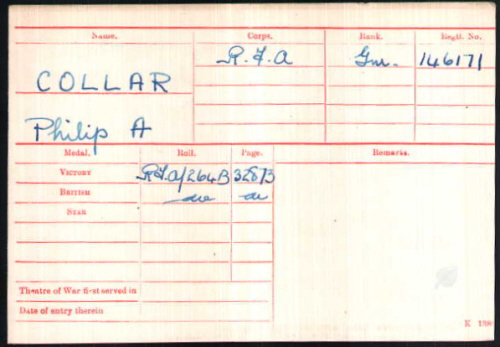 Name. Corps. Rank. Regtl. No.
COLLAR R.F.A Gnr. 146171
Philip A
Medal. Roll. Page. Remarks.
VICTORY R.F.A/264B 32873
BRITISH do do
STAR
Theatre of War first served in
Date of entry therein
K 1380